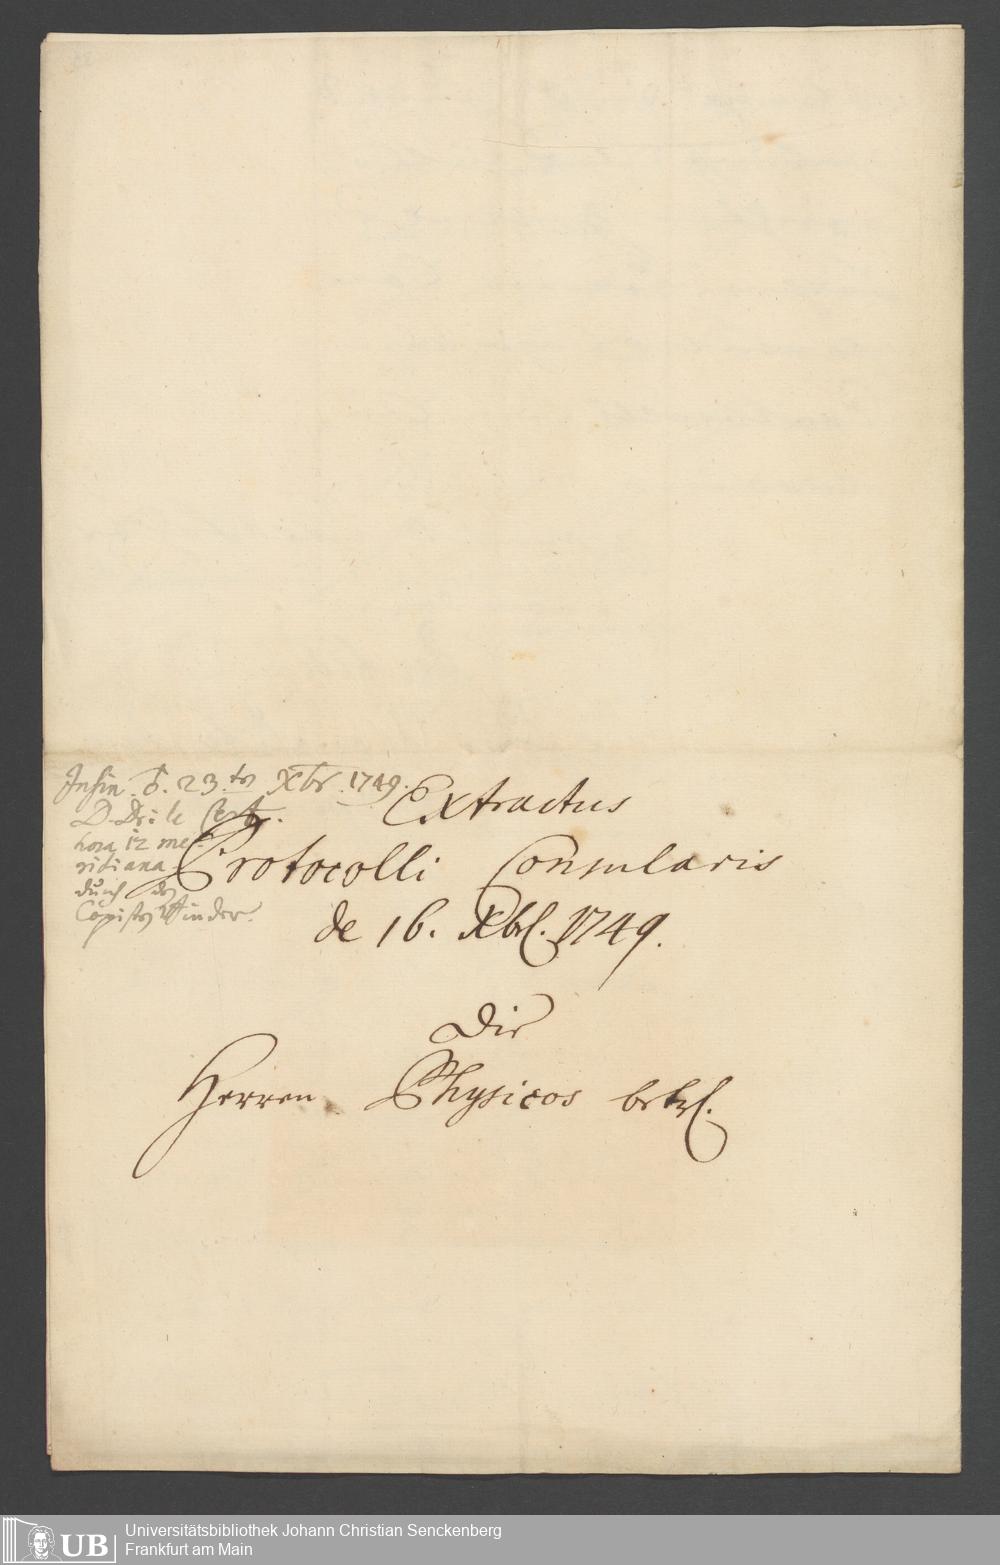 Insin. d. 23.ten Xbr. 1749.
D. Dr: le Cerf.
hora 12 me-
ridiana
durch den
Copisten Winder.
Extractus
Protocolli Consularis
de 16. Xbrl. 1749.
Die
Herren Physicos betrl.
UB
Universitätsbibliothek Johann Christian Senckenberg
Frankfurt am Main